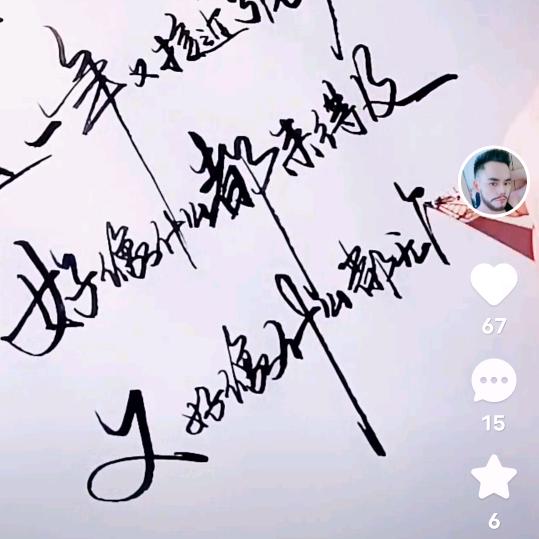 一年又接近
好像什么都来得及
又好像什么都
67
15
6